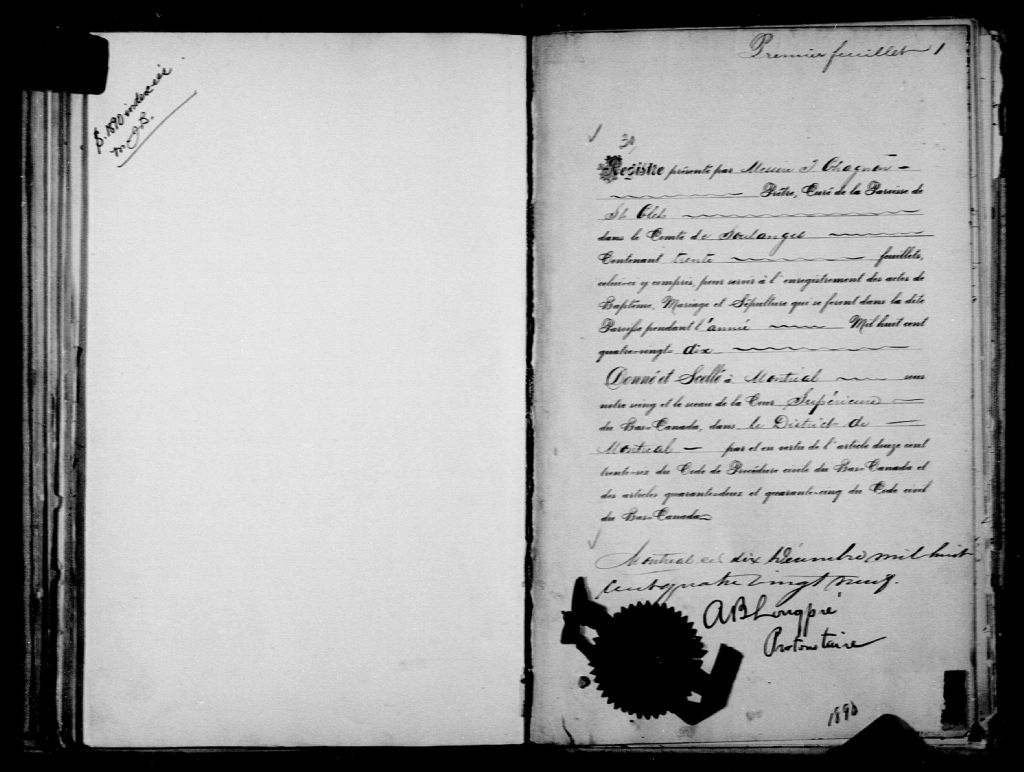 1890 index
Premier feuillet 1
30
Registre présenté par Messire J Chagnon
Prêtre, Curé de la Paroisse de
St Clet
dans le Comté de Soulanges
Contenant trente feuillets,
celui-ci y compris, pour servir à l'enregistrement des actes de
Baptême, Mariage et Sépulture qui se feront dans la dite
Paroisse pendant l'année Mil huit cent
quatre-vingt- dix
Donné et Scellé à Montréal sous
notre seing et le sceau de la Cour Supérieure
du Bas-Canada, dans le District de
Montréal par et en vertu de l'article douze cent
trente-six du Code de Procédure civile du Bas-Canada et
des articles quarante-deux et quarante-cinq du Code civil
du Bas-Canada
Montreal ce dix Décembre mil huit
cent quatre vingt neuf.
AB Longpré
Protonotaire
1890